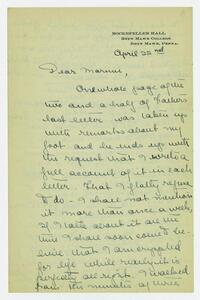 ROCKEFELLER HALL
BRYN MAWR COLLEGE
BRYN MAWR, PENNA.
April 22nd
Dear Mamma,
One whole page of the
two and a half of Father's
last letter was taken up
with remarks about my
foot and he ends up with
the request that I write a
full account of it in each
letter. That I flatly refuse
to do. I shall not mention
it more than once a week,
if I talk about it all the
time I shall soon come to be-
lieve that I am crippled
for life while really it is
perfectly all right. I walked
five minutes at three